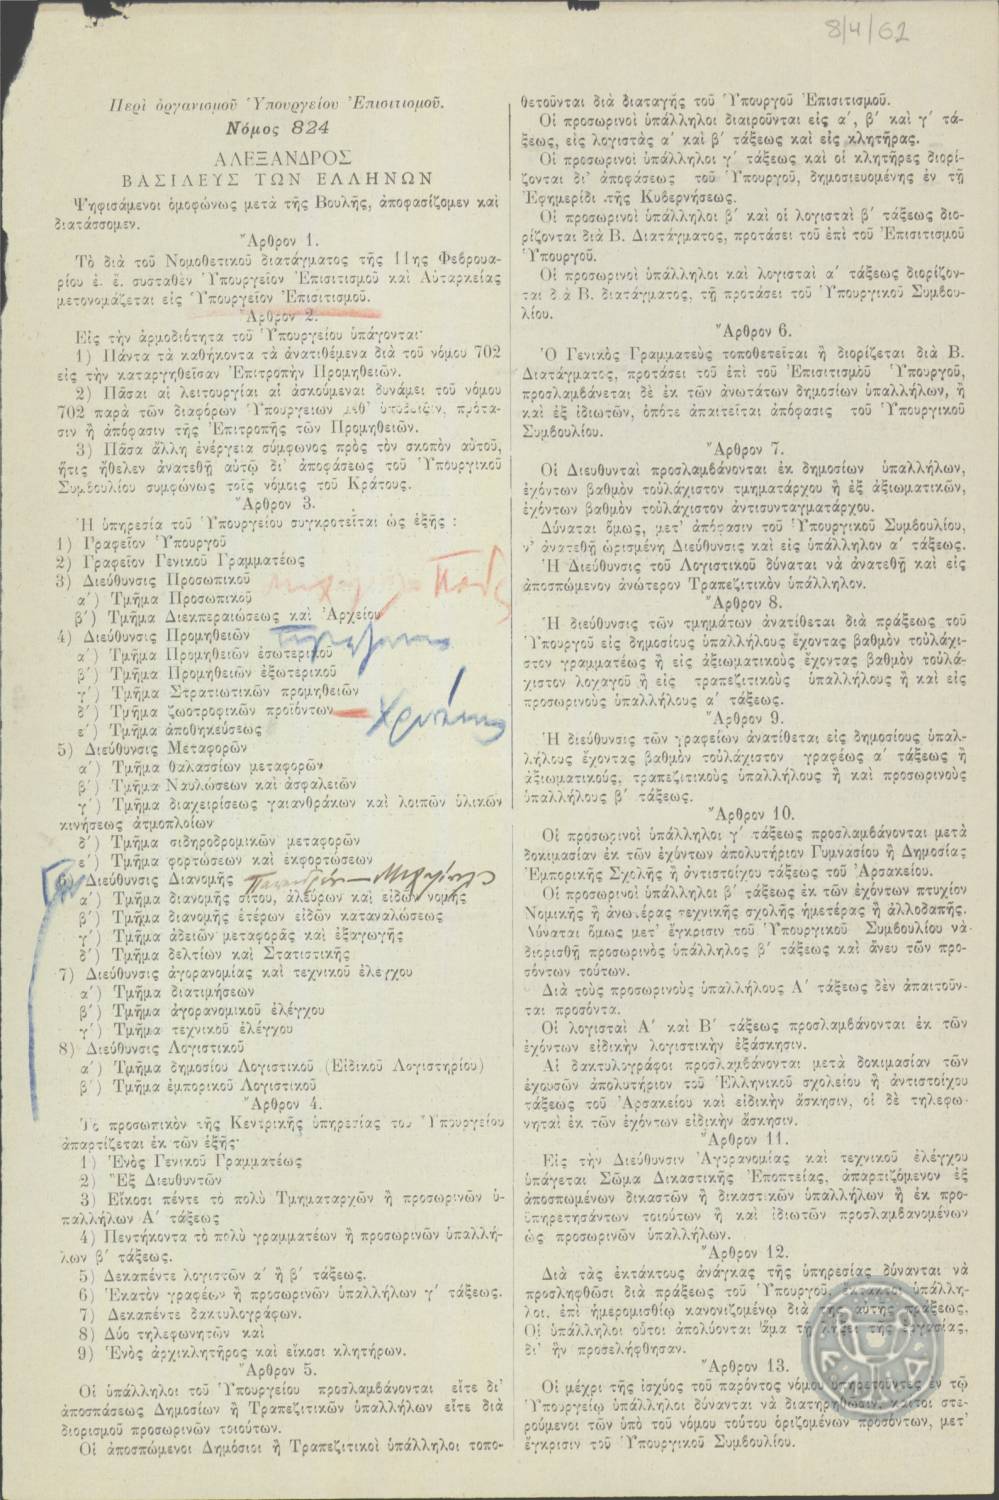 8/4/62
Περὶ ὀργανισμοῦ Ὑπουργείου Ἐπισιτισμοῦ.
Νόμος 824
ΑΛΕΞΑΝΔΡΟΣ
ΒΑΣΙΛΕΥΣ ΤΩΝ ΕΛΛΗΝΩΝ
Ψηφισάμενοι ὁμοφώνως μετὰ τῆς Βουλῆς, ἀποφασίζομεν καὶ
διατάσσομεν.
Ἄρθρον 1.
Τὸ διὰ τοῦ Νομοθετικοῦ διατάγματος τῆς 11ης Φεβρουα-
ρίου ἐ. ἔ. συσταθὲν Ὑπουργεῖον Ἐπισιτισμοῦ καὶ Αὐταρκείας
μετονομάζεται εἰς Ὑπουργεῖον Ἐπισιτισμοῦ.
Ἄρθρον 2.
Εἰς τὴν ἁρμοδιότητα τοῦ Ὑπουργείου ὑπάγονται·
1) Πάντα τὰ καθήκοντα τὰ ἀνατιθέμενα διὰ τοῦ νόμου 702
εἰς τὴν καταργηθεῖσαν Ἐπιτροπὴν Προμηθειῶν.
2) Πᾶσαι αἱ λειτουργίαι αἱ ἀσκούμεναι δυνάμει τοῦ νόμου
702 παρὰ τῶν διαφόρων Ὑπουργείων μεθ' ὑπόδειξιν, πρότα-
σιν ἢ ἀπόφασιν τῆς Ἐπιτροπῆς τῶν Προμηθειῶν.
3) Πᾶσα ἄλλη ἐνέργεια σύμφωνος πρὸς τὸν σκοπὸν αὐτοῦ,
ἥτις ἤθελεν ἀνατεθῆ αὐτῷ δι' ἀποφάσεως τοῦ Ὑπουργικοῦ
Συμβουλίου συμφώνως τοῖς νόμοις τοῦ Κράτους.
Ἄρθρον 3.
Ἡ ὑπηρεσία τοῦ Ὑπουργείου συγκροτεῖται ὡς ἑξῆς :
1) Γραφεῖον Ὑπουργοῦ
2) Γραφεῖον Γενικοῦ Γραμματέως
3) Διεύθυνσις Προσωπικοῦ
α΄) Τμῆμα Προσωπικοῦ
β΄) Τμῆμα Διεκπεραιώσεως καὶ Ἀρχείου
4) Διεύθυνσις Προμηθειῶν
α΄) Τμῆμα Προμηθειῶν ἐσωτερικοῦ
β΄) Τμῆμα Προμηθειῶν ἐξωτερικοῦ
γ΄) Τμῆμα Στρατιωτικῶν προμηθειῶν
δ΄) Τμῆμα ζωοτροφικῶν προϊόντων
ε΄) Τμῆμα ἀποθηκεύσεως
5) Διεύθυνσις Μεταφορῶν
α΄) Τμῆμα θαλασσίων μεταφορῶν
β΄) Τμῆμα Ναυλώσεων καὶ ἀσφαλειῶν
γ΄) Τμῆμα διαχειρίσεως γαιανθράκων καὶ λοιπῶν ὑλικῶν
κινήσεως ἀτμοπλοίων
δ΄) Τμῆμα σιδηροδρομικῶν μεταφορῶν
ε΄) Τμῆμα φορτώσεων καὶ ἐκφορτώσεων
6) Διεύθυνσις Διανομῆς
α΄) Τμῆμα διανομῆς σίτου, ἀλεύρων καὶ εἰδῶν νομῆς
β΄) Τμῆμα διανομῆς ἑτέρων εἰδῶν καταναλώσεως
γ΄) Τμῆμα ἀδειῶν μεταφορᾶς καὶ ἐξαγωγῆς
δ΄) Τμῆμα δελτίων καὶ Στατιστικῆς
7) Διεύθυνσις ἀγορανομίας καὶ τεχνικοῦ ἐλέγχου
α΄) Τμῆμα διατιμήσεων
β΄) Τμῆμα ἀγορανομικοῦ ἐλέγχου
γ΄) Τμῆμα τεχνικοῦ ἐλέγχου
8) Διεύθυνσις Λογιστικοῦ
α΄) Τμῆμα δημοσίου Λογιστικοῦ (Εἰδικοῦ Λογιστηρίου)
β΄) Τμῆμα ἐμπορικοῦ Λογιστικοῦ
Ἄρθρον 4.
Τὸ προσωπικὸν τῆς Κεντρικῆς ὑπηρεσίας τοῦ Ὑπουργείου
ἀπαρτίζεται ἐκ τῶν ἑξῆς·
1) Ἑνὸς Γενικοῦ Γραμματέως
2) Ἓξ Διευθυντῶν
3) Εἴκοσι πέντε τὸ πολὺ Τμηματαρχῶν ἢ προσωρινῶν ὑ-
παλλήλων Α΄ τάξεως
4) Πεντήκοντα τὸ πολὺ γραμματέων ἢ προσωρινῶν ὑπαλλή-
λων β΄ τάξεως.
5) Δεκαπέντε λογιστῶν α΄ ἢ β΄ τάξεως.
6) Ἑκατὸν γραφέων ἢ προσωρινῶν ὑπαλλήλων γ΄ τάξεως.
7) Δεκαπέντε δακτυλογράφων.
8) Δύο τηλεφωνητῶν καὶ
9) Ἑνὸς ἀρχικλητῆρος καὶ εἴκοσι κλητήρων.
Ἄρθρον 5.
Οἱ ὑπάλληλοι τοῦ Ὑπουργείου προσλαμβάνονται εἴτε δι'
ἀποσπάσεως Δημοσίων ἢ Τραπεζιτικῶν ὑπαλλήλων εἴτε διὰ
διορισμοῦ προσωρινῶν τοιούτων.
Οἱ ἀποσπώμενοι Δημόσιοι ἢ Τραπεζιτικοὶ ὑπάλληλοι τοπο-
θετοῦνται διὰ διαταγῆς τοῦ Ὑπουργοῦ Ἐπισιτισμοῦ.
Οἱ προσωρινοὶ ὑπάλληλοι διαιροῦνται εἰς α΄, β΄ καὶ γ΄ τά-
ξεως, εἰς λογιστὰς α΄ καὶ β΄ τάξεως καὶ εἰς κλητῆρας.
Οἱ προσωρινοὶ ὑπάλληλοι γ΄ τάξεως καὶ οἱ κλητῆρες διορί-
ζονται δι' ἀποφάσεως τοῦ Ὑπουργοῦ, δημοσιευομένης ἐν τῇ
Ἐφημερίδι τῆς Κυβερνήσεως.
Οἱ προσωρινοὶ ὑπάλληλοι β΄ καὶ οἱ λογισταὶ β΄ τάξεως διο-
ρίζονται διὰ Β. Διατάγματος, προτάσει τοῦ ἐπὶ τοῦ Ἐπισιτισμοῦ
Ὑπουργοῦ.
Οἱ προσωρινοὶ ὑπάλληλοι καὶ λογισταὶ α΄ τάξεως διορίζον-
ται διὰ Β. διατάγματος, τῇ προτάσει τοῦ Ὑπουργικοῦ Συμβου-
λίου.
Ἄρθρον 6.
Ὁ Γενικὸς Γραμματεὺς τοποθετεῖται ἢ διορίζεται διὰ Β.
Διατάγματος, προτάσει τοῦ ἐπὶ τοῦ Ἐπισιτισμοῦ Ὑπουργοῦ,
προσλαμβάνεται δὲ ἐκ τῶν ἀνωτάτων δημοσίων ὑπαλλήλων, ἢ
καὶ ἐξ ἰδιωτῶν, ὁπότε ἀπαιτεῖται ἀπόφασις τοῦ Ὑπουργικοῦ
Συμβουλίου.
Ἄρθρον 7.
Οἱ Διευθυνταὶ προσλαμβάνονται ἐκ δημοσίων ὑπαλλήλων,
ἐχόντων βαθμὸν τοὐλάχιστον τμηματάρχου ἢ ἐξ ἀξιωματικῶν,
ἐχόντων βαθμὸν τοὐλάχιστον ἀντισυνταγματάρχου.
Δύναται ὅμως, μετ' ἀπόφασιν τοῦ Ὑπουργικοῦ Συμβουλίου,
ν' ἀνατεθῇ ὡρισμένη Διεύθυνσις καὶ εἰς ὑπάλληλον α΄ τάξεως.
Ἡ Διεύθυνσις τοῦ Λογιστικοῦ δύναται νὰ ἀνατεθῇ καὶ εἰς
ἀποσπώμενον ἀνώτερον Τραπεζιτικὸν ὑπάλληλον.
Ἄρθρον 8.
Ἡ διεύθυνσις τῶν τμημάτων ἀνατίθεται διὰ πράξεως τοῦ
Ὑπουργοῦ εἰς δημοσίους ὑπαλλήλους ἔχοντας βαθμὸν τοὐλάχι-
στον γραμματέως ἢ εἰς ἀξιωματικοὺς ἔχοντας βαθμὸν τοὐλά-
χιστον λοχαγοῦ ἢ εἰς τραπεζιτικοὺς ὑπαλλήλους ἢ καὶ εἰς
προσωρινοὺς ὑπαλλήλους α΄ τάξεως.
Ἄρθρον 9.
Ἡ διεύθυνσις τῶν γραφείων ἀνατίθεται εἰς δημοσίους ὑπαλ-
λήλους ἔχοντας βαθμὸν τοὐλάχιστον γραφέως α΄ τάξεως ἢ
ἀξιωματικούς, τραπεζιτικοὺς ὑπαλλήλους ἢ καὶ προσωρινοὺς
ὑπαλλήλους β΄ τάξεως.
Ἄρθρον 10.
Οἱ προσωρινοὶ ὑπάλληλοι γ΄ τάξεως προσλαμβάνονται μετὰ
δοκιμασίαν ἐκ τῶν ἐχόντων ἀπολυτήριον Γυμνασίου ἢ Δημοσίας
Ἐμπορικῆς Σχολῆς ἢ ἀντιστοίχου τάξεως τοῦ Ἀρσακείου.
Οἱ προσωρινοὶ ὑπάλληλοι β΄ τάξεως ἐκ τῶν ἐχόντων πτυχίον
Νομικῆς ἢ ἀνωτέρας τεχνικῆς σχολῆς ἡμετέρας ἢ ἀλλοδαπῆς.
Δύναται ὅμως μετ' ἔγκρισιν τοῦ Ὑπουργικοῦ Συμβουλίου νὰ
διορισθῇ προσωρινὸς ὑπάλληλος β΄ τάξεως καὶ ἄνευ τῶν προ-
σόντων τούτων.
Διὰ τοὺς προσωρινοὺς ὑπαλλήλους Α΄ τάξεως δὲν ἀπαιτοῦν-
ται προσόντα.
Οἱ λογισταὶ Α΄ καὶ Β΄ τάξεως προσλαμβάνονται ἐκ τῶν
ἐχόντων εἰδικὴν λογιστικὴν ἐξάσκησιν.
Αἱ δακτυλογράφοι προσλαμβάνονται μετὰ δοκιμασίαν τῶν
ἐχουσῶν ἀπολυτήριον τοῦ Ἑλληνικοῦ σχολείου ἢ ἀντιστοίχου
τάξεως τοῦ Ἀρσακείου καὶ εἰδικὴν ἄσκησιν, οἱ δὲ τηλεφω-
νηταὶ ἐκ τῶν ἐχόντων εἰδικὴν ἄσκησιν.
Ἄρθρον 11.
Εἰς τὴν Διεύθυνσιν Ἀγορανομίας καὶ τεχνικοῦ ἐλέγχου
ὑπάγεται Σῶμα Δικαστικῆς Ἐποπτείας, ἀπαρτιζόμενον ἐξ
ἀποσπωμένων δικαστῶν ἢ δικαστικῶν ὑπαλλήλων ἢ ἐκ προ-
ϋπηρετησάντων τοιούτων ἢ καὶ ἰδιωτῶν προσλαμβανομένων
ὡς προσωρινῶν ὑπαλλήλων.
Ἄρθρον 12.
Διὰ τὰς ἐκτάκτους ἀνάγκας τῆς ὑπηρεσίας δύνανται νὰ
προσληφθῶσι διὰ πράξεως τοῦ Ὑπουργοῦ, ἔκτακτοι ὑπάλλη-
λοι, ἐπὶ ἡμερομισθίῳ κανονιζομένῳ διὰ τῆς αὐτῆς πράξεως.
Οἱ ὑπάλληλοι οὗτοι ἀπολύονται ἅμα τῇ λήξει τῆς ἐργασίας,
δι' ἣν προσελήφθησαν.
Ἄρθρον 13.
Οἱ μέχρι τῆς ἰσχύος τοῦ παρόντος νόμου ὑπηρετοῦντες ἐν τῷ
Ὑπουργείῳ ὑπάλληλοι δύνανται νὰ διατηρηθῶσιν, καίτοι στε-
ρούμενοι τῶν ὑπὸ τοῦ νόμου τούτου ὁριζομένων προσόντων, μετ'
ἔγκρισιν τοῦ Ὑπουργικοῦ Συμβουλίου.